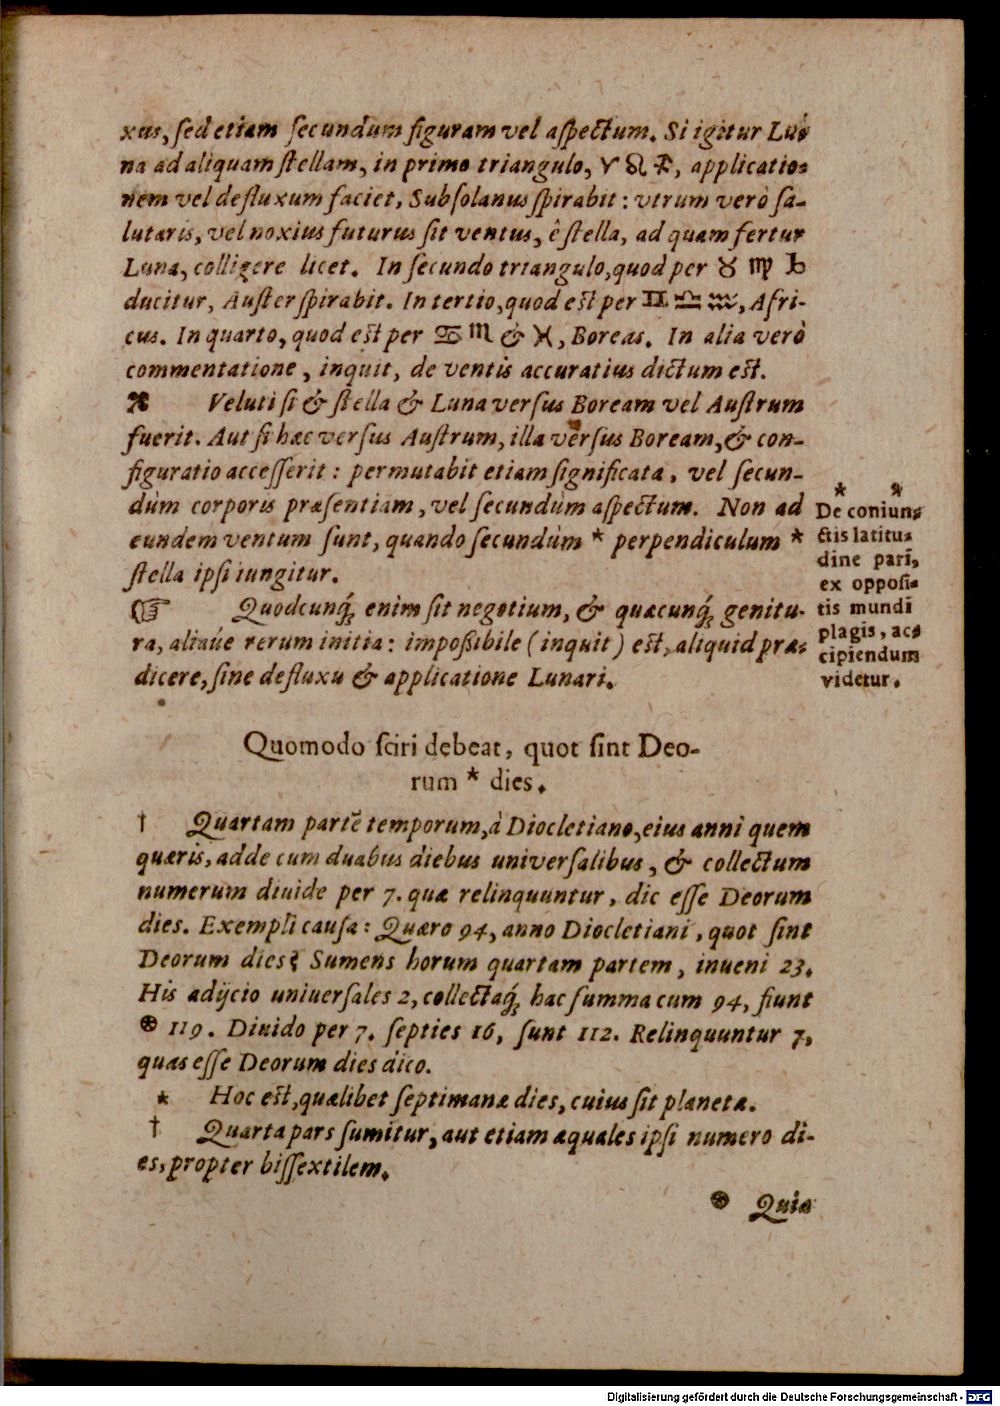 xus, sed etiam secundum figuram vel aspectum. Si igitur Lu-
na ad aliquam stellam, in primo triangulo, ♈ ♌ ♐, applicatio-
nem vel defluxum faciet, Subsolanus spirabit: vtrum verò sa-
lutaris, vel noxius futurus sit ventus, è stella, ad quam fertur
Luna, colligere licet. In secundo triangulo, quod per ♉ ♍ ♑
ducitur, Auster spirabit. In tertio, quod est per ♊ ♎ ♒, Afri-
cus. In quarto, quod est per ♋ ♏ & ♓, Boreas. In alia verò
commentatione, inquit, de ventis accuratius dictum est.
✠ Veluti si & stella & Luna versus Boream vel Austrum
fuerit. Aut si hæc versus Austrum, illa versus Boream, & con-
figuratio accesserit: permutabit etiam significata, vel secun-
dùm corporis præsentiam, vel secundùm aspectum. Non ad
eundem ventum sunt, quando secundùm * perpendiculum *
stella ipsi iungitur.
* *
De coniun-
ctis latitu-
dine parī,
ex opposi-
tis mundi
plagis, ac-
cipiendum
videtur.
☞ Quodcunq́; enim sit negotium, & quæcunq́; genitu-
ra, aliaúe rerum initia: impoßibile (inquit) est, aliquid præ-
dicere, sine defluxu & applicatione Lunari.
Quomodo sciri debeat, quot sint Deo-
rum * dies.
† Quartam partē temporum, à Diocletiano, eius anni quem
quæris, adde cum duabus diebus universalibus, & collectum
numerum diuide per 7. quæ relinquuntur, dic esse Deorum
dies. Exempli causa: Quæro 94, anno Diocletiani, quot sint
Deorum dies? Sumens horum quartam partem, inueni 23.
His adijcio uniuersales 2, collectaq́; hac summa cum 94, fiunt
⊛ 119. Diuido per 7. septies 16, sunt 112. Relinquuntur 7,
quas esse Deorum dies dico.
* Hoc est, quælibet septimanæ dies, cuius sit planetæ.
† Quarta pars sumitur, aut etiam æquales ipsi numero di-
es, propter bissextilem.
⊛ Quia
Digitalisierung gefördert durch die Deutsche Forschungsgemeinschaft - DFG